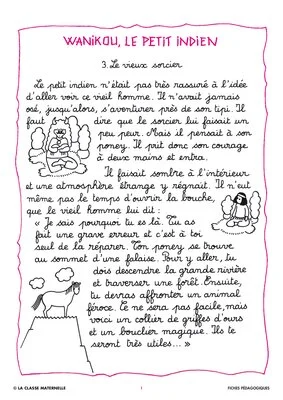 WANIKOU, LE PETIT INDIEN
3. Le vieux sorcier
Le petit indien n'était pas très rassuré à l'idée
d'aller voir ce vieil homme. Il n'avait jamais
osé, jusqu'alors, s'aventurer près de son tipi. Il
faut dire que le sorcier lui faisait un
peu peur. Mais il pensait à son
poney. Il prit donc son courage
à deux mains et entra.
Il faisait sombre à l'intérieur
et une atmosphère étrange y régnait. Il n'eut
même pas le temps d'ouvrir la bouche,
que le vieil homme lui dit :
« Je sais pourquoi tu es là. Tu as
fait une grave erreur et c'est à toi
seul de la réparer. Ton poney se trouve
au sommet d'une falaise. Pour y aller, tu
dois descendre la grande rivière
et traverser une forêt. Ensuite,
tu devras affronter un animal
féroce. Ce ne sera pas facile, mais
voici un collier de griffes d'ours
et un bouclier magique. Ils te
seront très utiles... »
© LA CLASSE MATERNELLE
1
FICHES PÉDAGOGIQUES